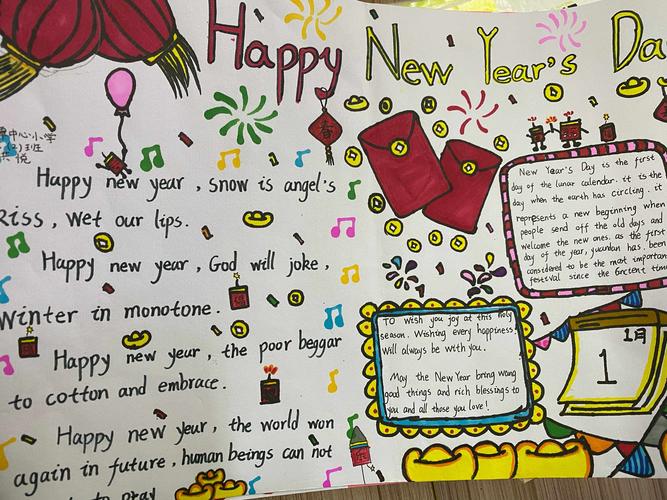 Happy New Year's Da
春
中心小学
(2)班
悦
Happy new year, snow is angel's
kiss, wet our lips.
Happy new year, God will joke,
winter in monotone.
Happy new year, the poor beggar
to cotton and embrace.
Happy new year, the world won
again in future, human beings can not
to pray
New Year's Day is the first
day of the lunar calendar. it is the
day when the earth has circling. it
represents a new beginning when
people send off the old days and
welcome the new ones. as the first
day of the year, yuandan has been
considered to be the most important
festival since the ancient time
To wish you joy at this holy
season. Wishing every happiness
will always be with you.
May the New Year bring wang
good things and rich blessings to
you and all those you love!
1月
1